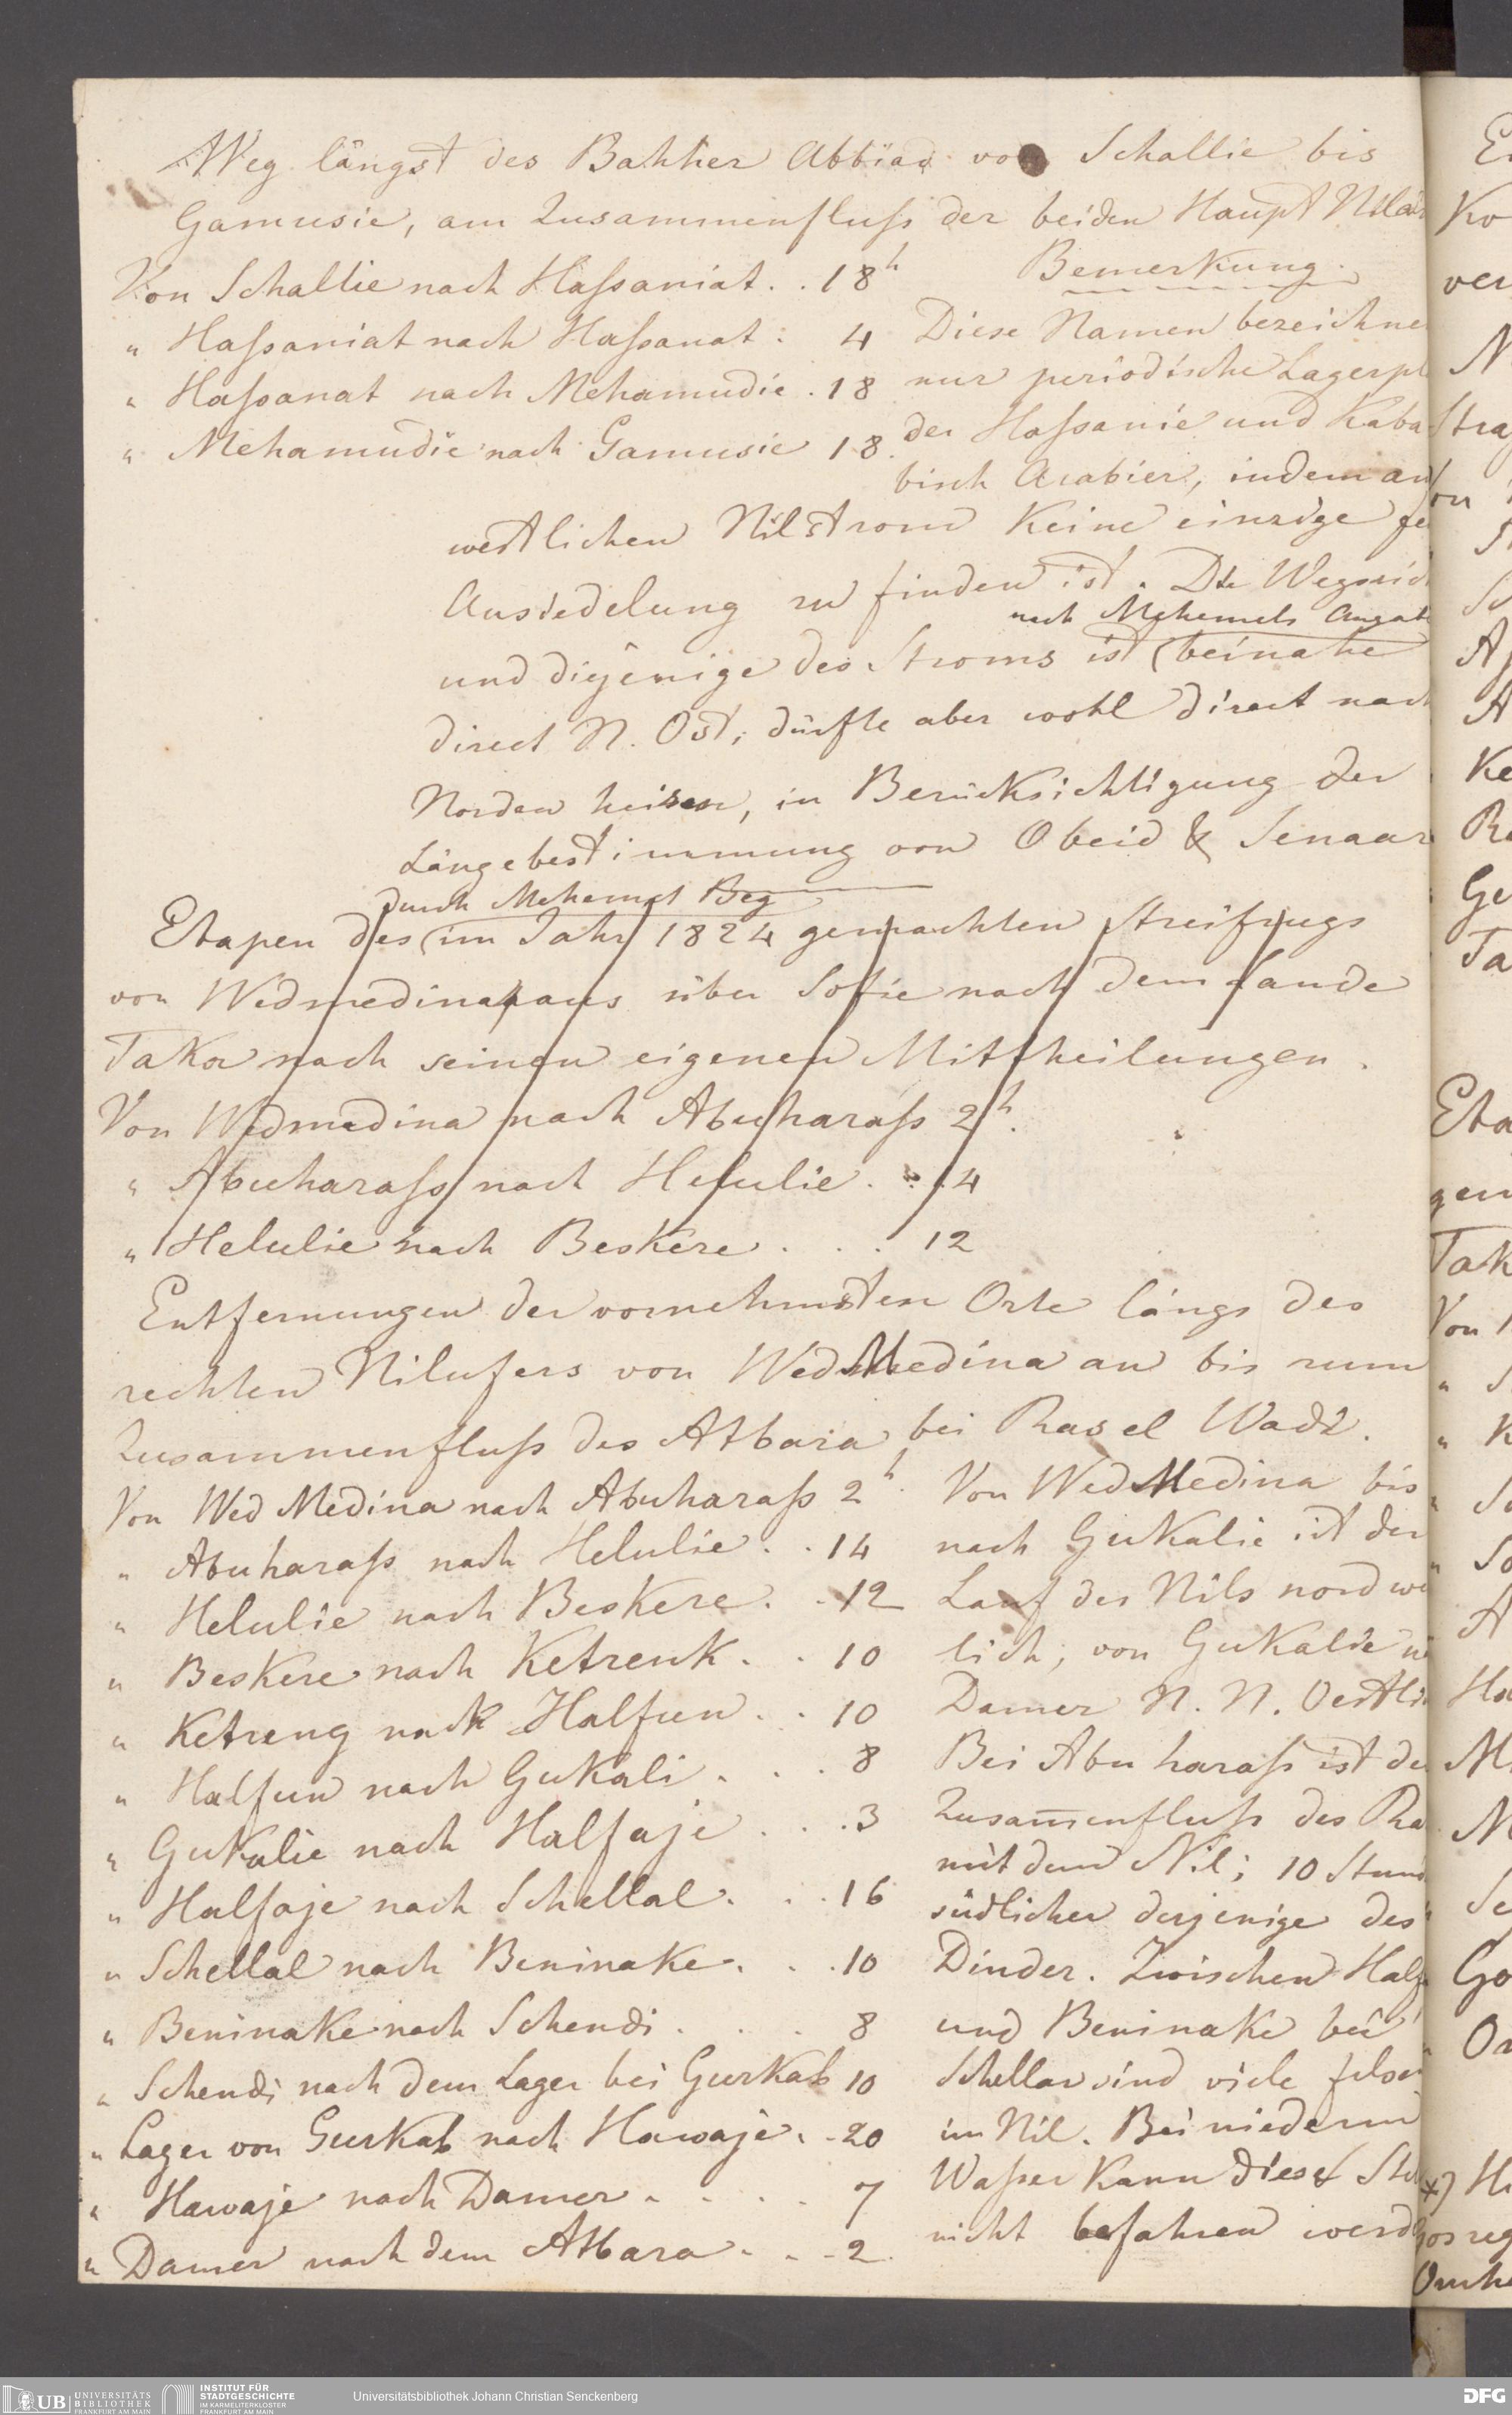 Weg längst des Bahher Abbiad von Schallie bis
Gamusie, am Zusammenfluss der beiden Haupt Nilä
Von Schallie nach Hassaniat. . 18h
" Hassaniat nach Hassanat : 4
" Hassanat nach Mehamudie . 18
" Mehamudie nach Gamusie 18.
Bemerkung.
Diese Namen bezeichne
nur periodische Lagerpl
der Hassanie und Kaba
bisch Arabier, indem an
westlichen Nilstrom Keine einzige fe
Ansiedelung zu finden ist. Die Wegsrich
nach Mehemets Angab
und diejenige des Stroms ist (beinahe
direct N. Ost; dürfte aber wohl direct nach
Norden heisen, in Berücksichtigung der
Längebestimmung von Obeid & Senaar
durch Mehemet Beg
Etapen des (im Jahr 1824 gemachten Streifzugs
von Wedmedina aus über Sofie nach dem Lande
Taka nach seinen eigenen Mittheilungen.
Von Wedmedina nach Abuharass 2h.
" Abuharass nach Helulie . . 14
" Helulie nach Beskere . . . 12
Entfernungen der vornehmsten Orte längs des
rechten Nilufers von Wed Medina an bis zum
Zusammenfluss des Atbara bei Ras el Wadi.
Von Wed Medina nach Abuharass 2h.
" Abuharass nach Helulie . . 14
" Helulie nach Beskere . . 12
" Beskere nach Ketrenk . . 10
" Ketreng nach Halfun . . 10
" Halfun nach Gukali . . . 8
" Gukalie nach Halfaje . . . 3
" Halfaje nach Schellal . . . 16
" Schellal nach Beninake . . . 10
" Beninake nach Schendi . . . 8
" Schendi nach dem Lager bei Gurkab 10
" Lager von Gurkab nach Hawaje . . 20
" Hawaje nach Damer . . . . 7
" Damer nach dem Atbara . . . 2.
Von Wed Medina bis
nach Gukalie ist der
Lauf des Nils nord we
lich, von Gukalie
Damer N. N. Oestli
Bei Abu harass ist de
Zusam̅enfluss des Ra
mit dem Nil; 10 Stund
südlicher derjenige des
Dinder. Zwischen Half
und Beninake bei
Schellar sind viele felse
im Nil. Bei niederm
Wasser Kann diese Ste
nicht befahren werd
Ko
ver
Stra
Ke
Ge
Ta
Eta
gem
Tak
Von
Go
UB UNIVERSITÄTS BIBLIOTHEK FRANKFURT AM MAIN
INSTITUT FÜR STADTGESCHICHTE IM KARMELITERKLOSTER FRANKFURT AM MAIN
Universitätsbibliothek Johann Christian Senckenberg
DFG